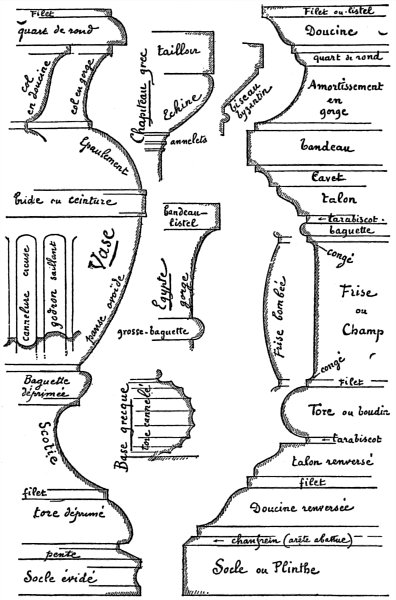 Filet
quart de rond
col
en doucine
col en gorge
Epaulement
bride ou ceinture
Vase
cannelure creuse
godron saillant
panse ovoïde
Baguette
déprimée
Scotie
filet
tore déprimé
pente
Socle évidé
Chapiteau grec
tailloir
Echine
annelets
biseau
byzantin
bandeau-
listel
Egypte
gorge
grosse-baguette
Base grecque
tore cannelé
Filet ou-listel
Doucine
quart de rond
Amortissement
en
gorge
bandeau
Cavet
talon
tarabiscot
baguette
congé
Frise bombée
Frise
ou
Champ
congé
Filet
Tore ou boudin
tarabiscot
talon renversé
filet
Doucine renversée
chanfrein (arête abattue)
Socle ou Plinthe